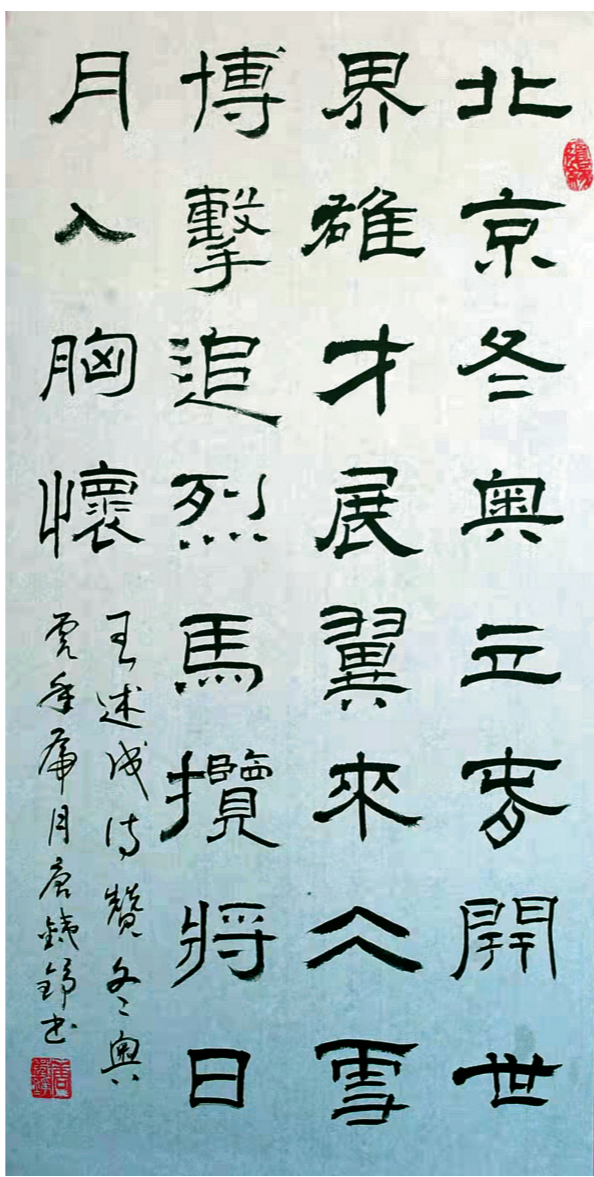 北京冬奧立春開世
界雄才展翼來仌雪
博擊追烈馬攬將日
月入胸懷
王述成诗贊冬奥
虎年虎月唐鐵錚书